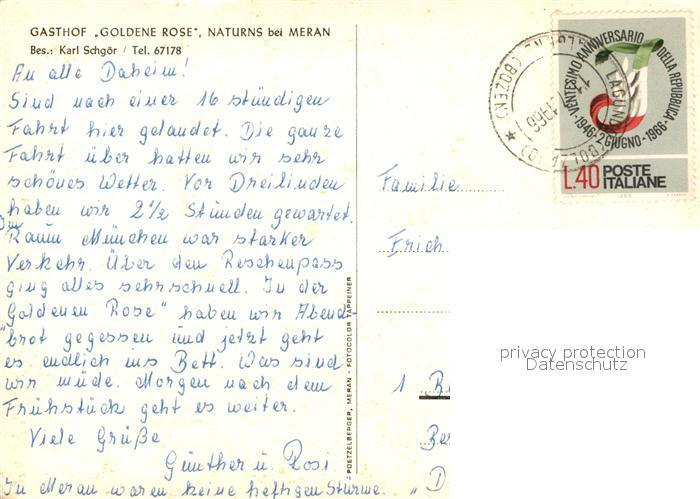 GASTHOF „GOLDENE ROSE", NATURNS bei MERAN
Bes.: Karl Schgör / Tel. 67178
An alle Daheim!
Sind nach einer 16 stündigen
Fahrt hier gelandet. Die ganze
Fahrt über hatten wir sehr
schönes Wetter. Vor Dreilinden
haben wir 2½ Stunden gewartet.
Im
Raum München war starker
Verkehr. Über den Reschenpass
ging alles sehr schnell. In der
„Goldenen Rose" haben wir Abend-
brot gegessen und jetzt geht
es endlich ins Bett. Was sind
wir müde. Morgen nach dem
Frühstück geht es weiter.
Viele Grüße
Günther u. Rosi
In Meran waren keine heftigen Stürme.
POETZELBERGER, MERAN - FOTOCOLOR TAPPEINER
(BOZEN)
1966
VENTESIMO ANNIVERSARIO
DELLA REPUBBLICA
1946-2 GIUGNO-1966
L.40 POSTE
ITALIANE
Familie
Erich
1 B
Be
„D
privacy protection
Datenschutz